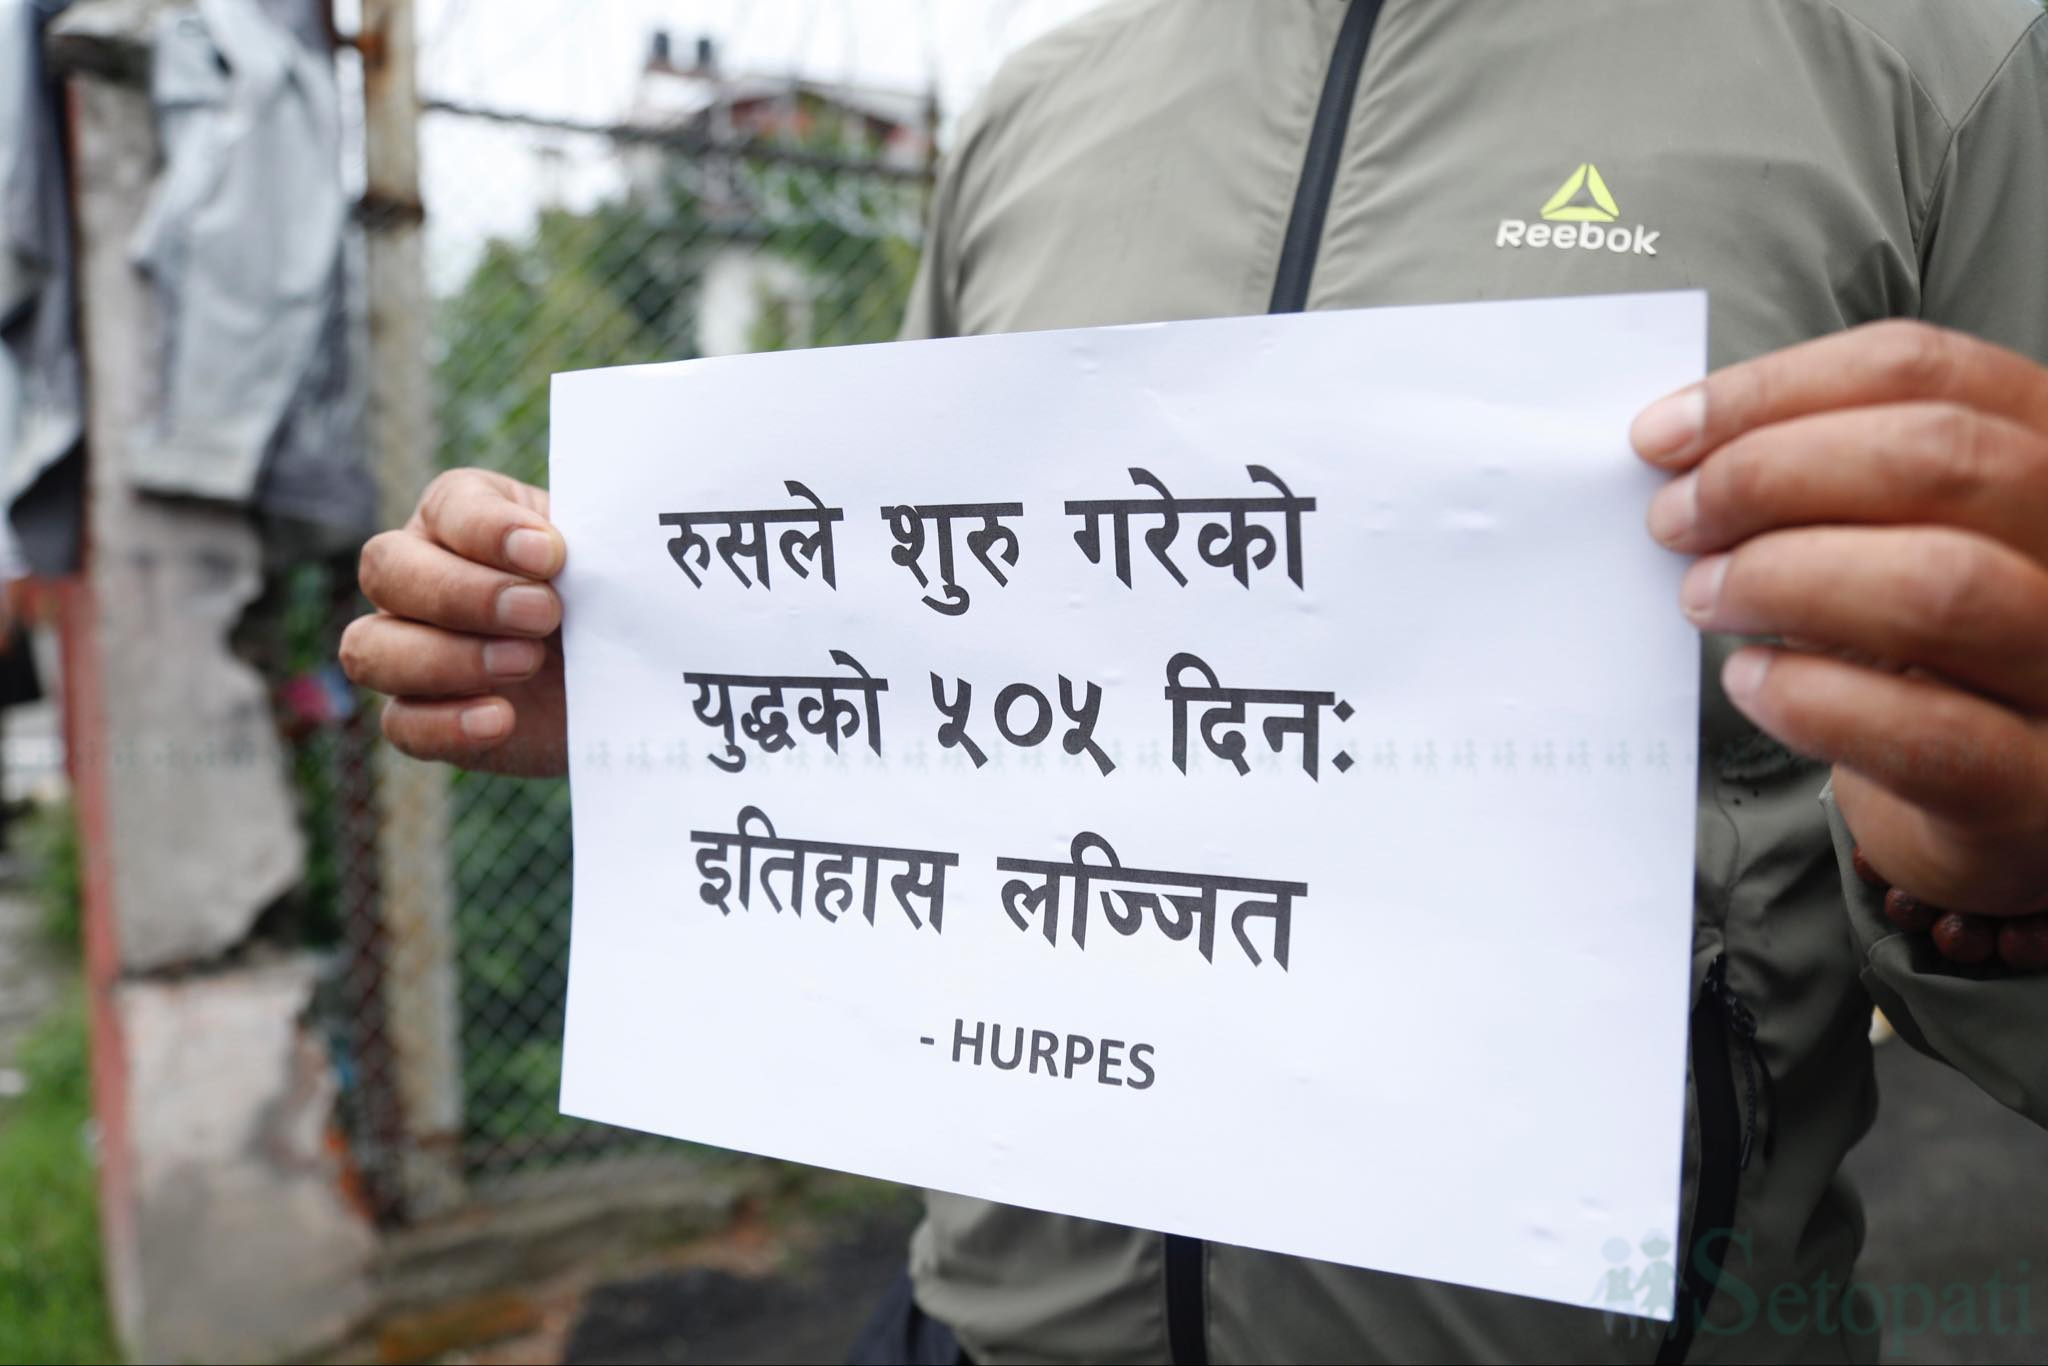 Reebok
रुसले शुरु गरेको
युद्धको ५०५ दिनः
इतिहास लज्जित
- HURPES
Setopati